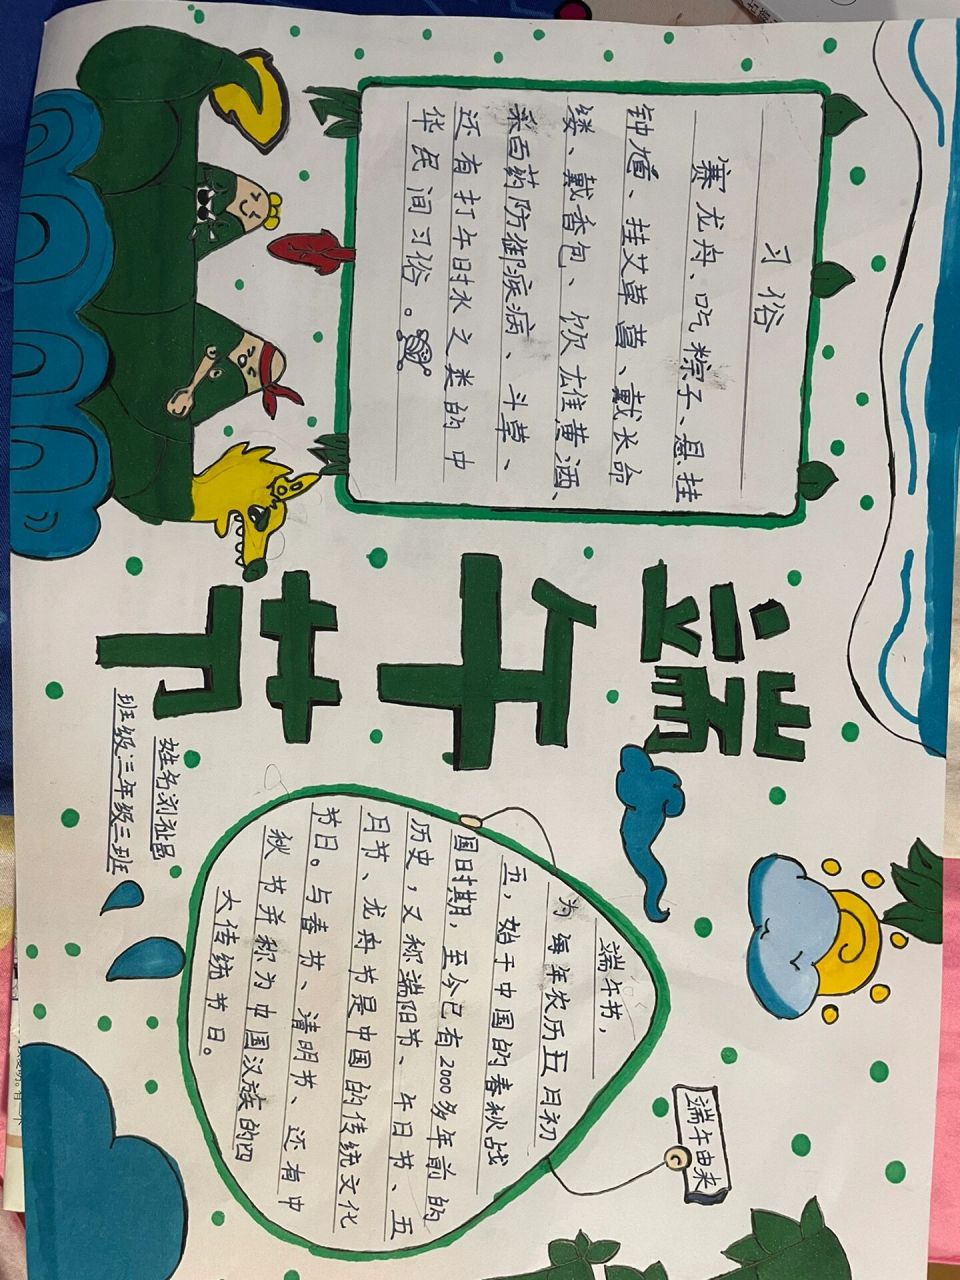 习俗
赛龙舟、吃粽子、悬挂
钟馗、挂艾草菖、戴长命
缕、戴香包、饮雄黄酒、
采百药防御疾病、斗草、
还有打午时水之类的中
华民间习俗。
端午节
姓名刘祉邑
班级三年级三班
端午由来
端午节，
为每年农历五月初
五，始于中国的春秋战
国时期，至今已有2000多年前的
历史，又称端阳节、午日节、五
月节、龙舟节是中国的传统文化
节日。与春节、清明节、还有中
秋节并称为中国汉族的四
大传统节日。